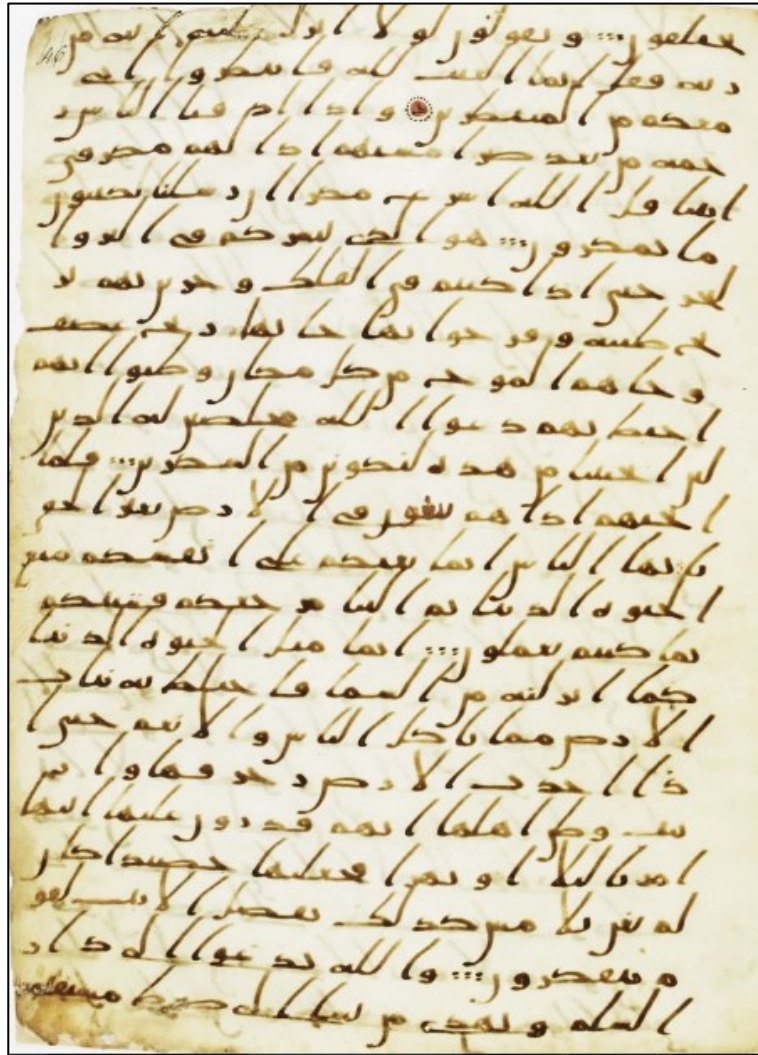 يختلفون ؞ ويقولون لولا انزل عليه اية من
ربه فقل انما الغيب لله فانتظروا اني
معكم من المنتظرين واذا اذقنا الناس ر
حمة من بعد ضرا مستهم اذا لهم مكر في
ايتنا قل الله اسرع مكرا ان رسلنا يكتبون
ما تمكرون ؞ هو الذي يسيركم في البر وا
لبحر حتى اذا كنتم في الفلك وجرين بهم بر
يح طيبة وفرحوا بها جاتها ريح عصف
وجاهم الموج من كل مكان وظنوا انهم
احيط بهم دعوا الله مخلصين له الدين
لئن انجيتنا من هذه لنكونن من الشكرين ؞ فلما
انجيهم اذا هم يبغون في الارض بغير الحق
يايها الناس انما بغيكم على انفسكم متع
الحيوة الدنيا ثم الينا مرجعكم فننبئكم
بما كنتم تعملون ؞ انما مثل الحيوة الدنيا
كما انزلنه من السما فاختلط به نبات
الارض مما ياكل الناس والانعم حتى ا
ذا اخذت الارض زخرفها وازين
ت وظن اهلها انهم قدرون عليها اتيها
امرنا ليلا او نهرا فجعلنها حصيدا كان
لم تغن بالامس كذلك نفصل الايت لقو
م يتفكرون ؞ والله يدعوا الى دار
السلم ويهدي من يشا الى صرط مستقيم